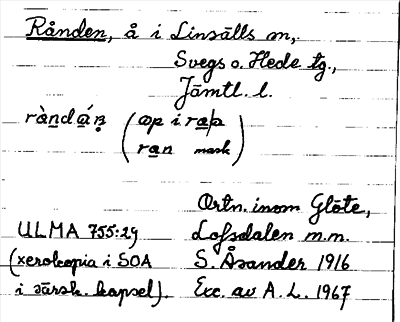 Rånden, å i Linsälls sn,
Svegs o. Hede tg.,
Jämtl. l.
ràndáṇ (op i rap
ran mask)
Ortn. inom Glöte,
Lofsdalen m.m.
ULMA 755:29
(xerokopia i SOA
i särsk. kapsel).
S. Åsander 1916
Exc. av A. L. 1967